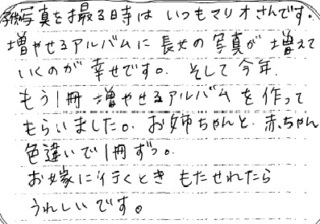 写真を撮る時は いつもマリオさんです。
増やせるアルバムに 長女の写真が増えて
いくのが幸せです。そして今年、
もう1冊 増やせるアルバムを作って
もらいました。お姉ちゃんと赤ちゃん
色違いで1冊ずつ。
お嫁に行くとき もたせれたら
うれしいです。